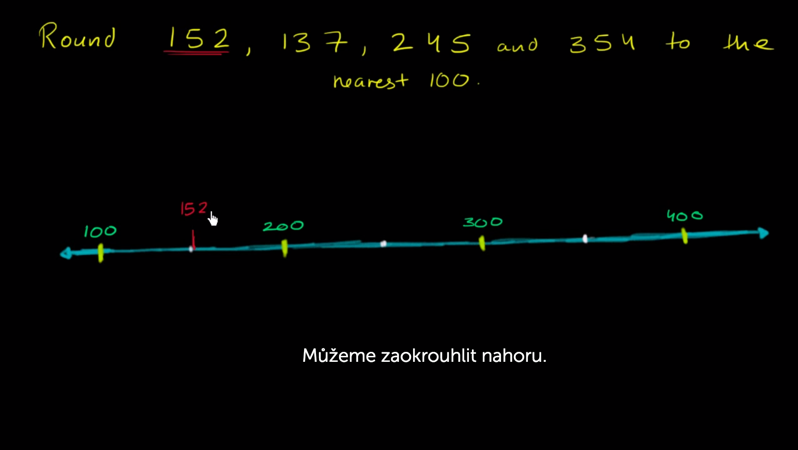 Round 152, 137, 245 and 354 to the
nearest 100.
152
100 200 300 400
Můžeme zaokrouhlit nahoru.